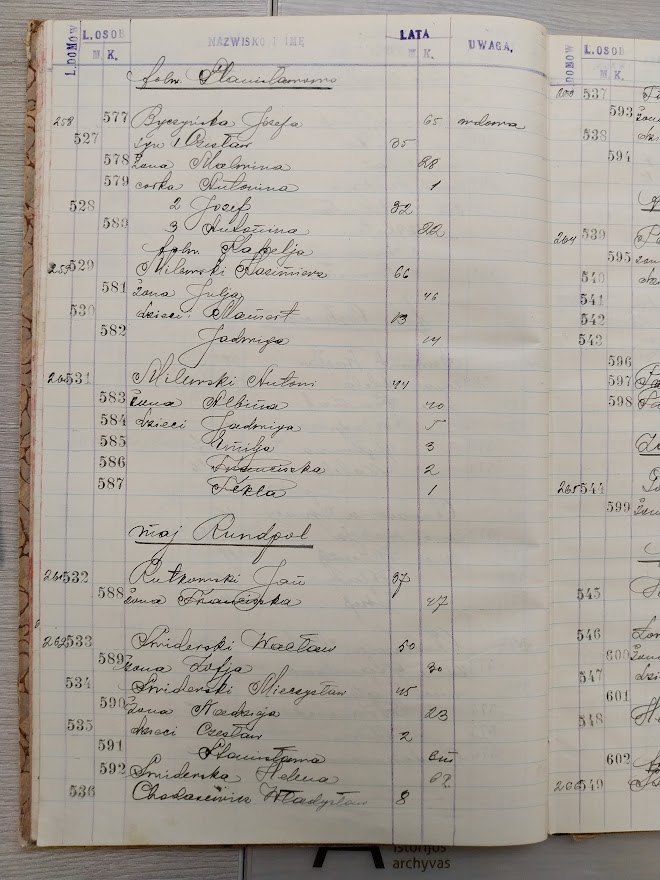 L.DOMÓW L.OSOB NAZWISKO I IMĘ LATA UWAGA.
M. K. M. K.
folw. Stanisławowo
258 577 Byczyńska Józefa 65 wdowa
527 syn 1 Czesław 35
578 żona Malwina 28
579 córka Antonina 1
528 2 Józef 32
580 3 Antonina 22
folw. Kapelja
259 529 Milewski Kazimierz 66
581 żona Julja 46
530 dzieci: 13
582 Jadwiga 14
260 531 Milewski Antoni 44
583 żona Albina 40
584 dzieci Jadwiga 5
585 Emilja 3
586 Franciszka 2
587 Tekla 1
maj Rundpol
261 532 Rutkowski Jan 37
588 żona Franciszka 47
262 533 Świderski Wacław 50
589 żona Zofja 30
534 Świderski Mieczysław 45
590 żona Nadzieja 23
535 dzieci Czesław 2
591 Stanisława
592 Świderska Helena 62
536 Chodasewicz Władysław 8
L.DOMÓW L.OSOB
M. K.
537
593
538
594
264 539
595
540
541
542
543
596
597
598
265 544
599
545
546
600
547
601
548
602
266 549
istorijos
archyvas